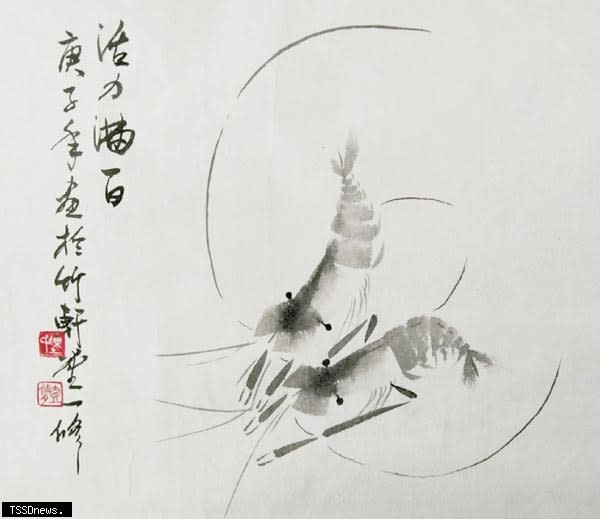 活力滿百
庚子年画於竹軒堂一修
TSSDnews.